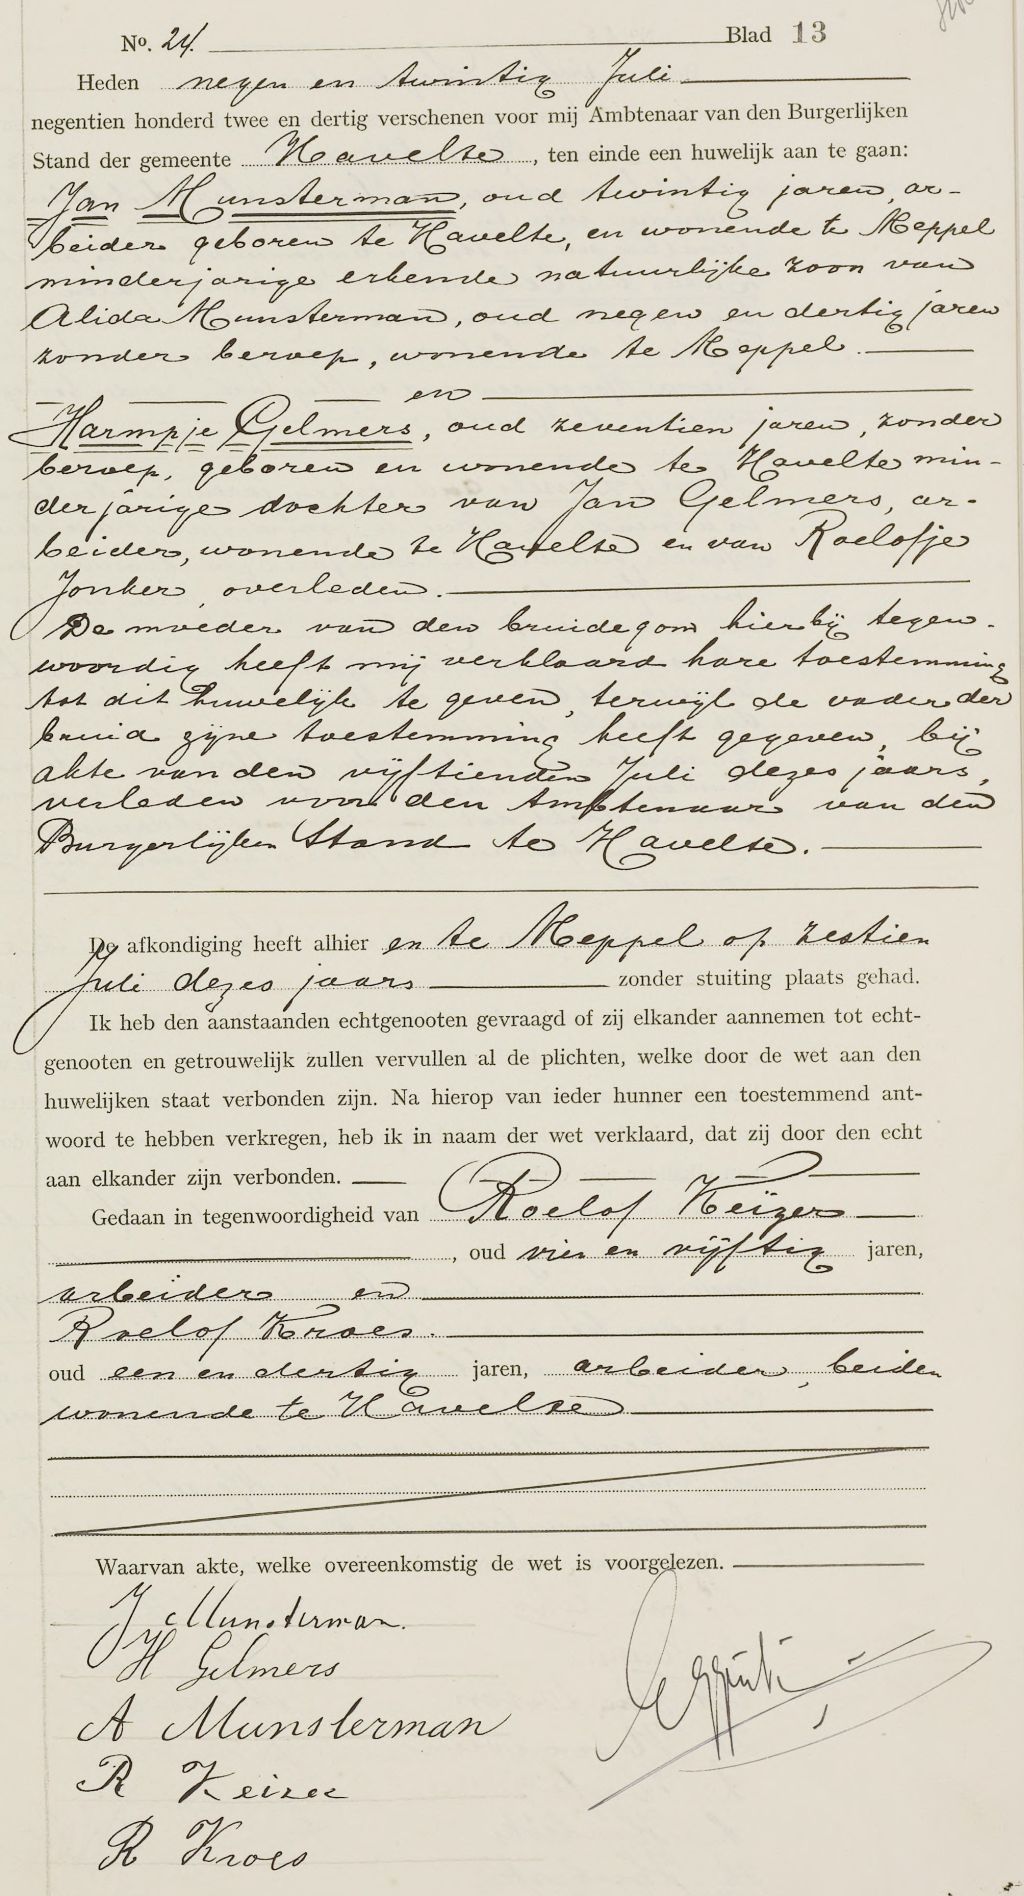 No. 24. Blad 13
Heden negen en twintig Juli
negentien honderd twee en dertig verschenen voor mij Ambtenaar van den Burgerlijken
Stand der gemeente Havelte, ten einde een huwelijk aan te gaan:
Jan Munsterman, oud twintig jaren, ar-
beider geboren te Havelte, en wonende te Meppel
minderjarige erkende natuurlijke zoon van
Alida Munsterman, oud negen en dertig jaren
zonder beroep, wonende te Meppel.
en
Harmpje Gelmers, oud zeventien jaren, zonder
beroep, geboren en wonende te Havelte min-
derjarige dochter van Jan Gelmers, ar-
beider, wonende te Havelte en van Roelofje
Jonker, overleden.
De moeder van den bruidegom hierbij tegen-
woordig heeft mij verklaard hare toestemming
tot dit huwelijk te geven, terwijl de vader der
bruid zijne toestemming heeft gegeven, bij
akte van den vijftienden Juli dezes jaars,
verleden voor den Ambtenaar van den
Burgerlijken Stand te Havelte.
De afkondiging heeft alhier en te Meppel op zestien
Juli dezes jaars zonder stuiting plaats gehad.
Ik heb den aanstaanden echtgenooten gevraagd of zij elkander aannemen tot echt-
genooten en getrouwelijk zullen vervullen al de plichten, welke door de wet aan den
huwelijken staat verbonden zijn. Na hierop van ieder hunner een toestemmend ant-
woord te hebben verkregen, heb ik in naam der wet verklaard, dat zij door den echt
aan elkander zijn verbonden.
Gedaan in tegenwoordigheid van Roelof Keizer
, oud vier en vijftig jaren,
arbeider en
Roelof Kroes.
oud een en dertig jaren, arbeider, beiden
wonende te Havelte
Waarvan akte, welke overeenkomstig de wet is voorgelezen.
J Munsterman.
H Gelmers
A Munsterman
R Keizer
R Kroes